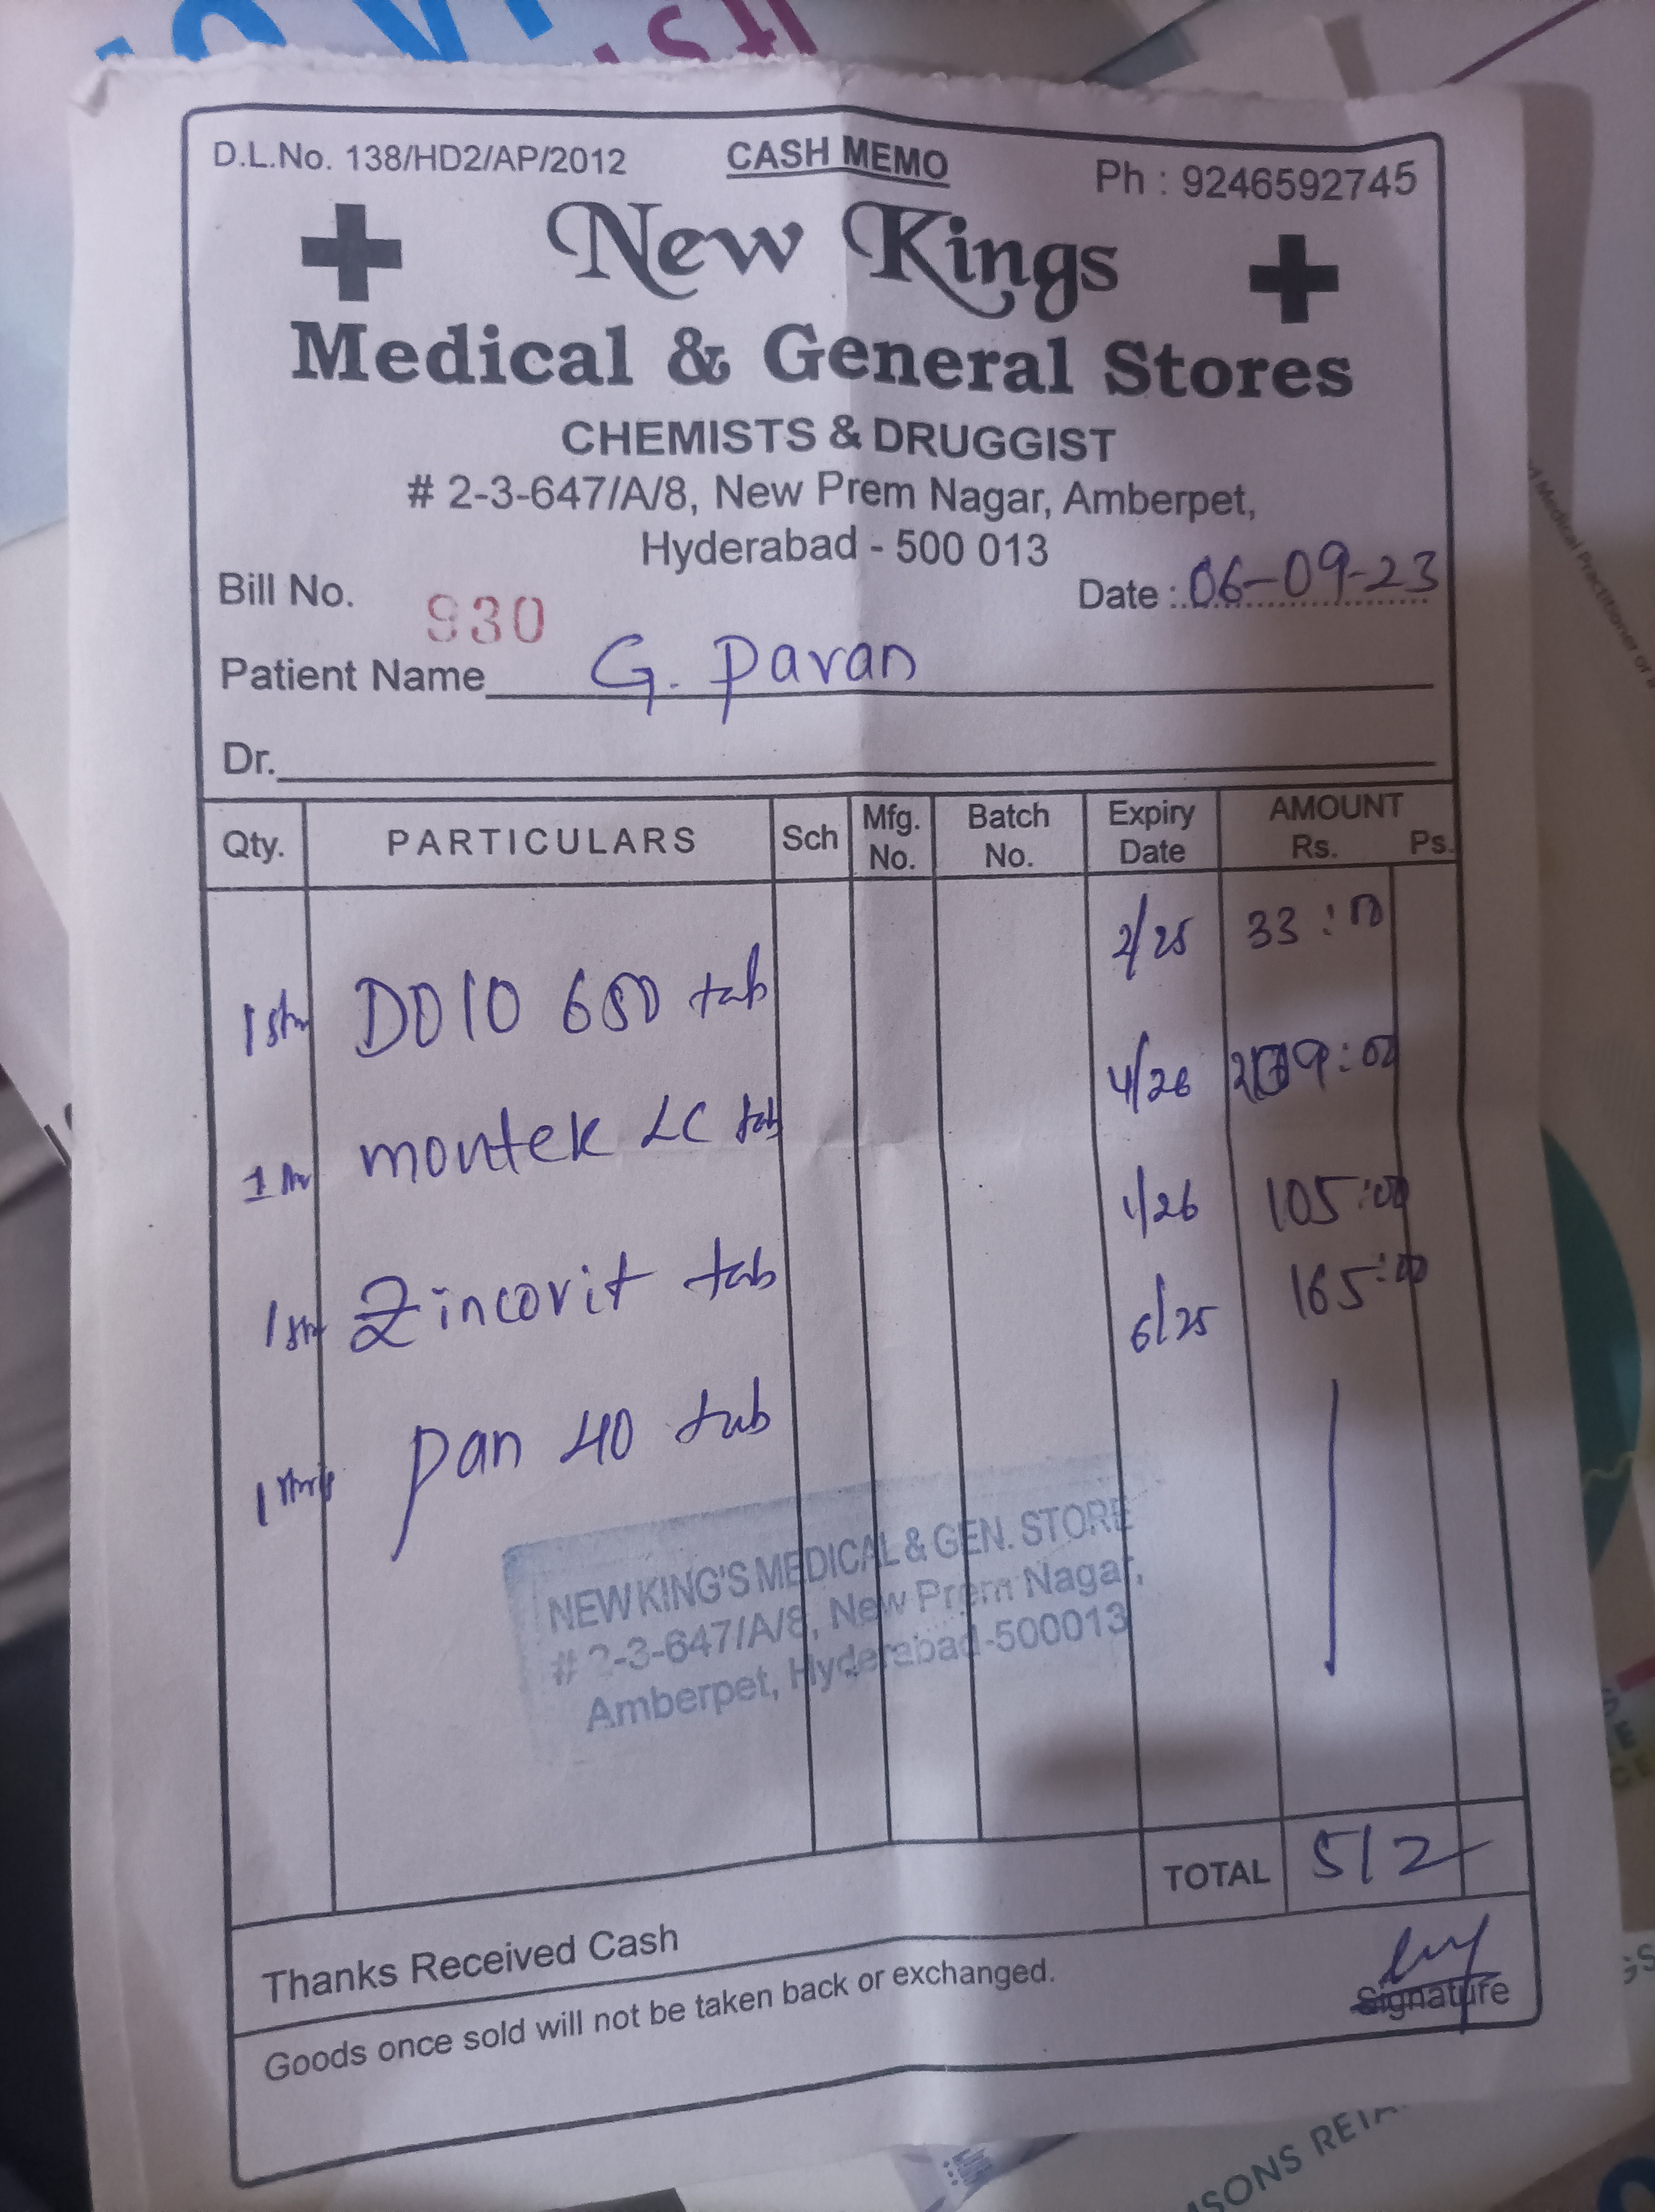 D.L.No. 138/HD2/AP/2012 CASH MEMO Ph : 9246592745
New Kings
Medical & General Stores
CHEMISTS & DRUGGIST
# 2-3-647/A/8, New Prem Nagar, Amberpet,
Hyderabad - 500 013
Bill No. 930 Date : 06-09-23
Patient Name G. Pavan
Dr.
Qty. PARTICULARS Sch Mfg. No. Batch No. Expiry Date AMOUNT Rs. Ps.
1 DOLO 650 tab 2/25 33:00
1 montek LC tab 4/26 209:00
1 Zincovit tab 1/26 105:00
1 Pan 40 tab 6/25 165:00
NEW KING'S MEDICAL & GEN. STORE
# 2-3-647/A/8, New Prem Nagar,
Amberpet, Hyderabad-500013
TOTAL 512
Thanks Received Cash
Signature
Goods once sold will not be taken back or exchanged.